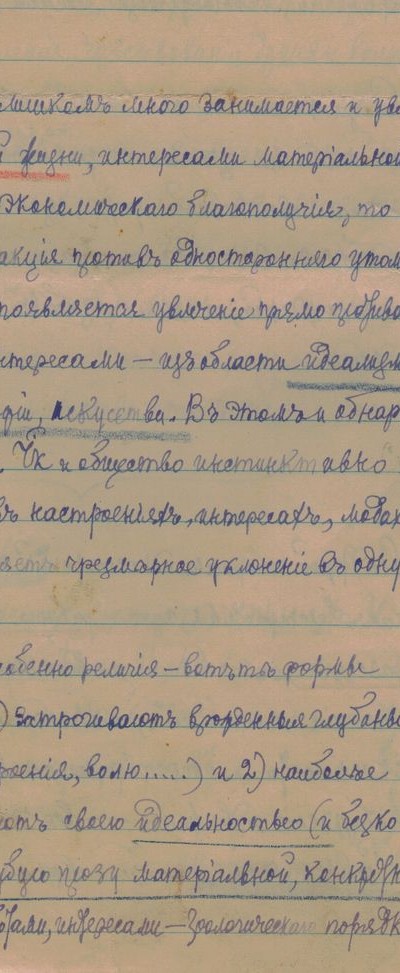 лишкомъ много занимается и увл
й жизни, интересами матерiальной
экономическаго благополучiя, то
акцiя противъ односторонняго утом
появляется увлеченiе прямо противо
нтересами — изъ области идеализм
фiи, искусства. Въ этомъ и обнар
и общество инстинктивно
въ настроенiяхъ, интересахъ, модах
яетъ чрезмѣрное уклоненiе въ одну
собенно религiя — вотъ тѣ формы
) затрогиваютъ врожденныя глубины
роенiя, волю.....) и 2) наиболѣе
ютъ своею идеальностью (и безко
убую прозу матерiальной, конкретн
отами, интересами — зоологическаго порядк